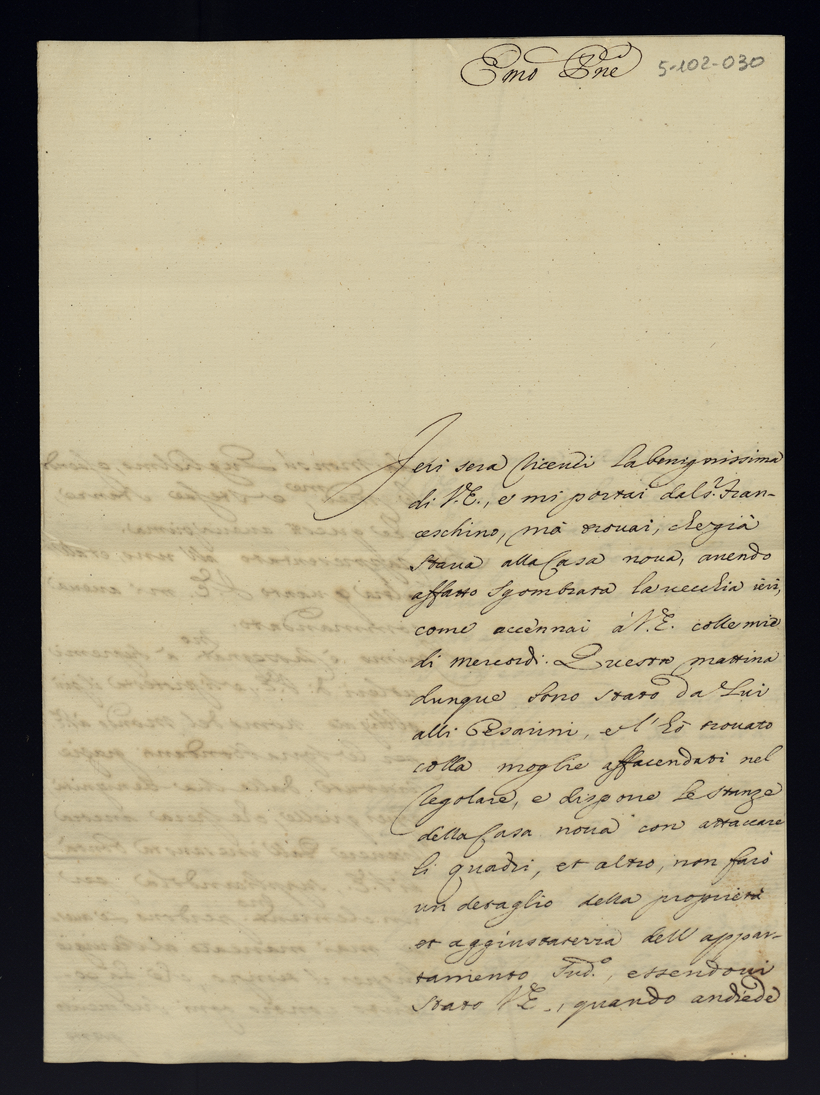 Emo Pne 5-102-030
Ieri sera ricevei la benignissima
di V.E., e mi portai dal Sr. Fran-
ceschino, mà trovai, che già
stava alla Casa nova, avendo
affatto sgombrata la vecchia ieri,
come accennai à V.E. colle mie
di mercordì. Questa mattina
dunque sono stato da Lui
alli Pesarini, e l'hò trovato
colla moglie affacendati nel
regolare, e dispone le stanze
della Casa nova con attaccare
li quadri, et altro, non farò
un detaglio della proprietà
et aggiustatezza dell'appar-
tamento sud.o, essendovi
stato V.E., quando andiede